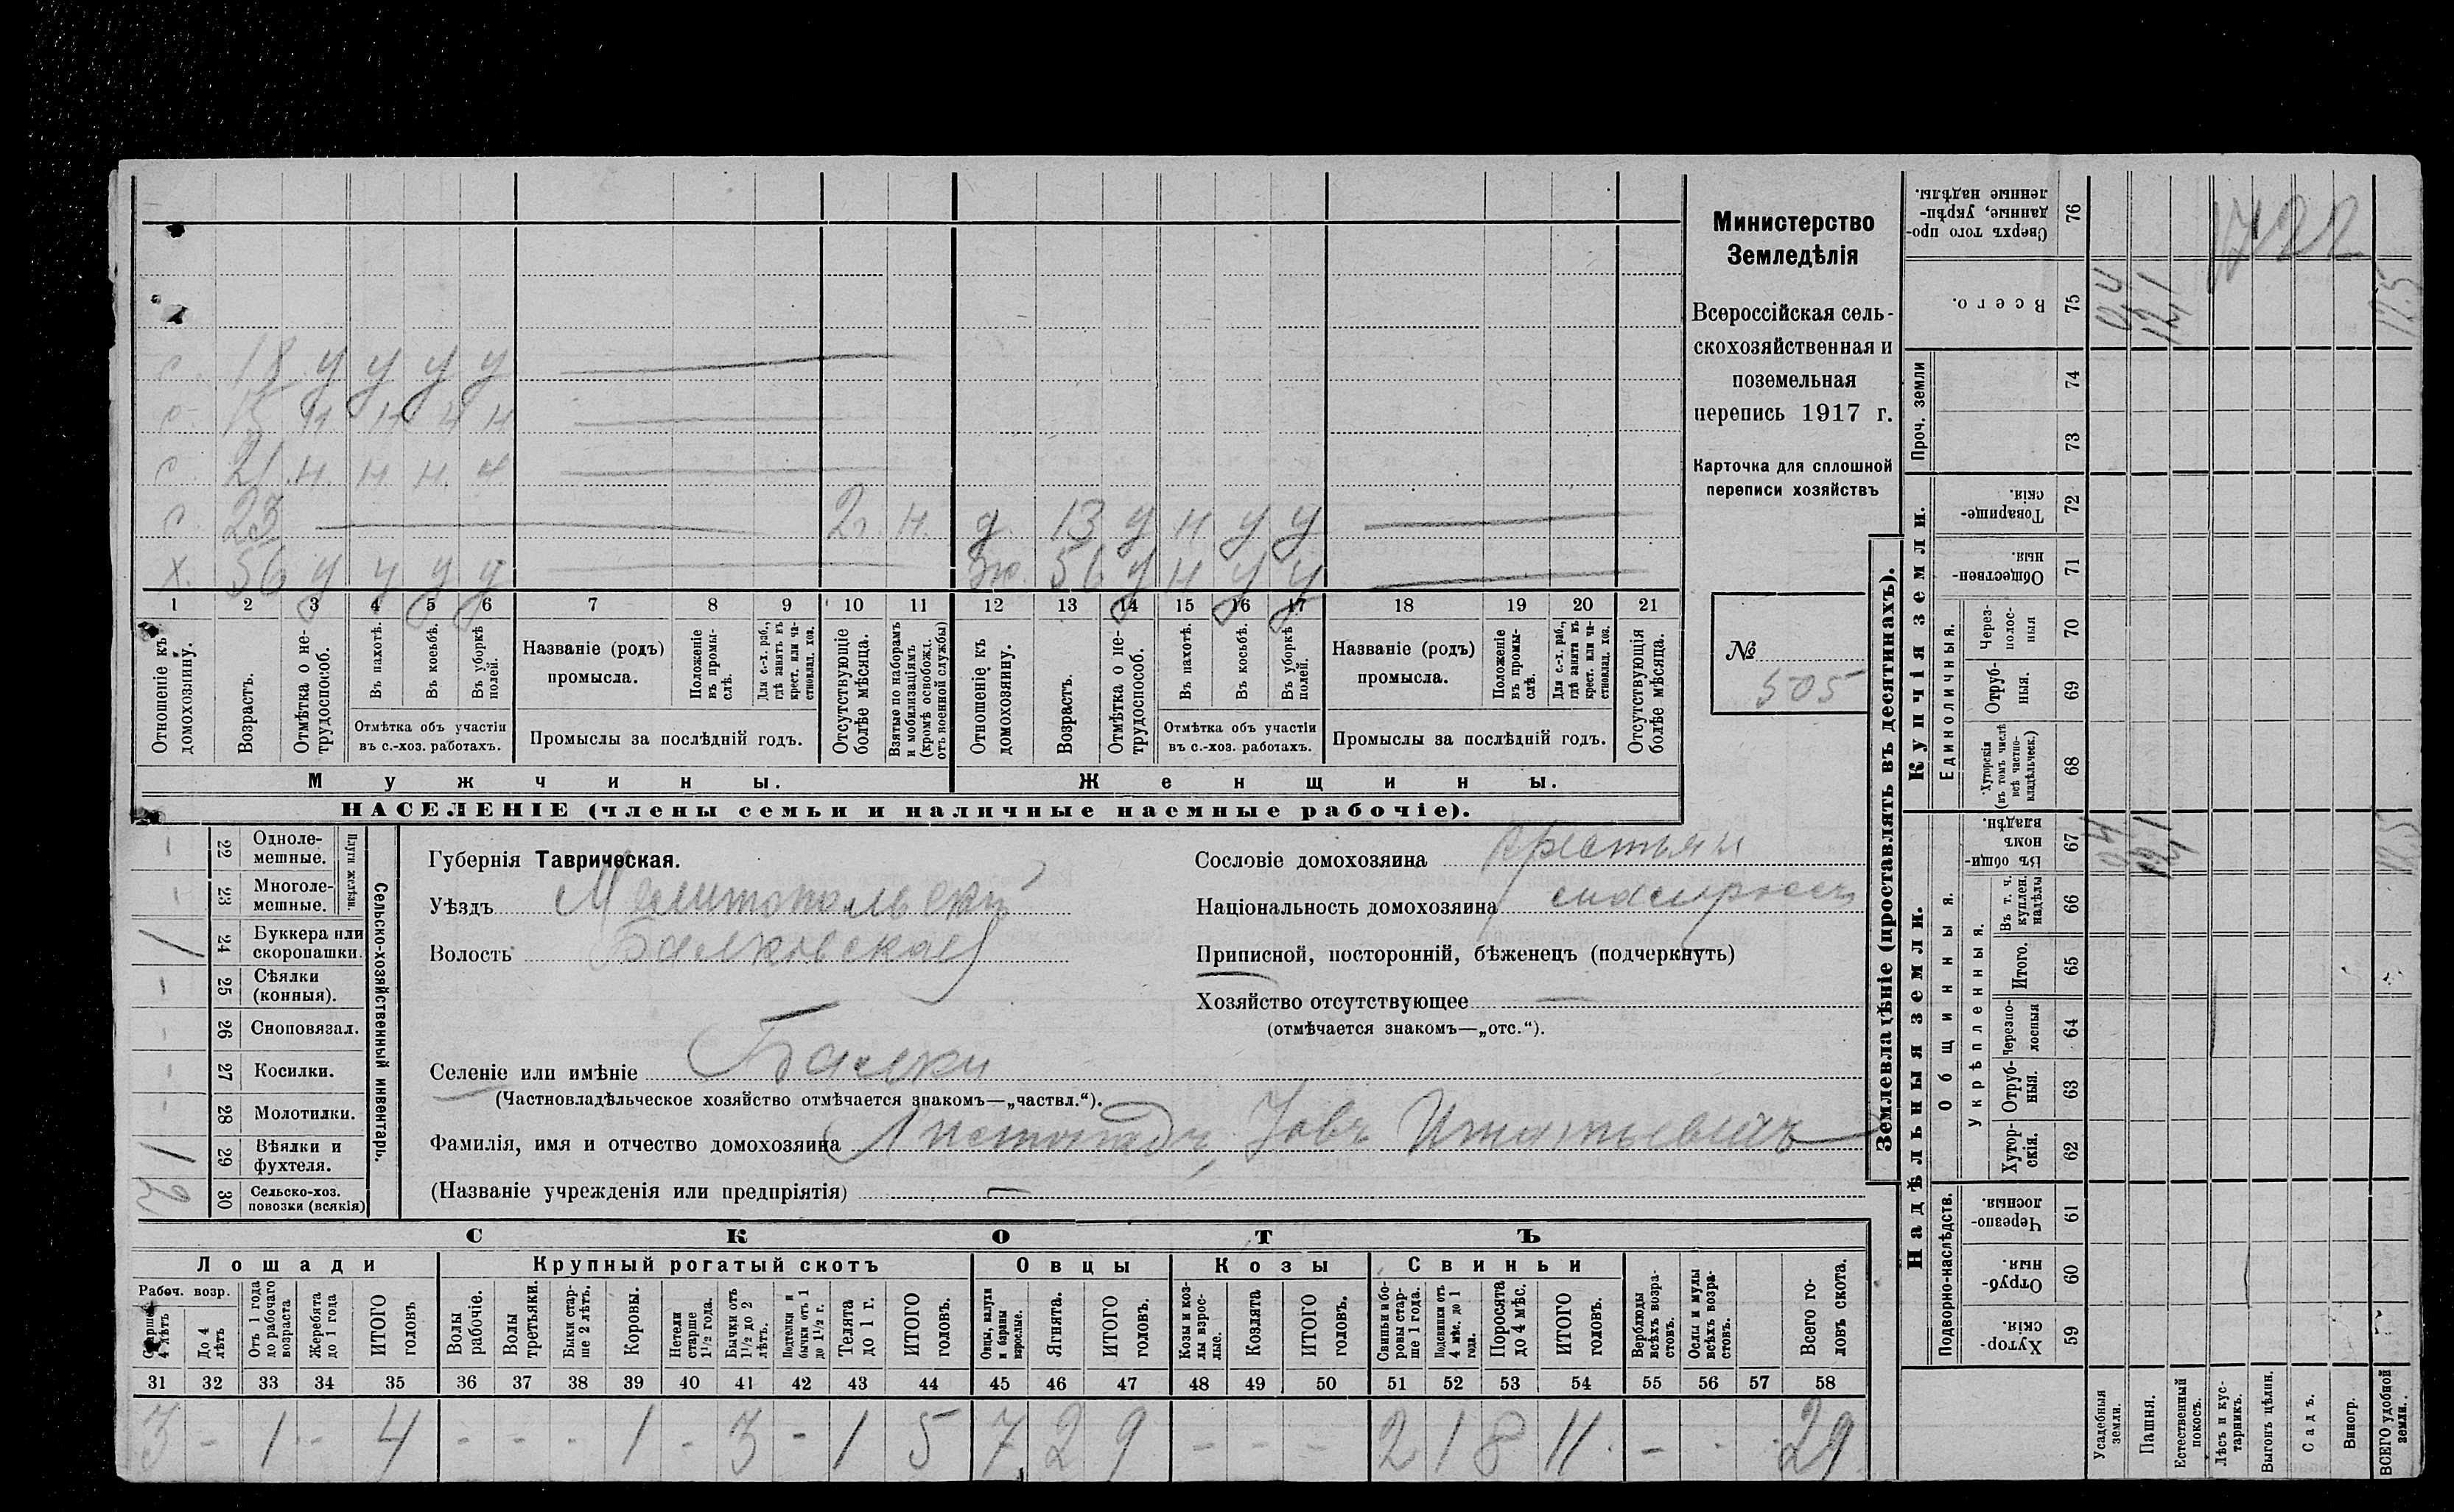 Министерство
Земледѣлія
Всероссійская сель-
скохозяйственная и
поземельная
перепись 1917 г.
Карточка для сплошной
переписи хозяйствъ
№
505
с. 18 у у у у
с. 15 н н н н
с. 21 н. н н. н
с. 23 2 г. н. д. 13 у н у у
х. 56 у у у у жо. 56 у н у у
1 2 3 4 5 6 7 8 9 10 11 12 13 14 15 16 17 18 19 20 21
Отношеніе къ домохозяину.
Возрастъ.
Отмѣтка о не-трудоспособ.
Въ пахотѣ.
Въ косьбѣ.
Въ уборкѣ полей.
Отмѣтка объ участіи
въ с.-хоз. работахъ.
Названіе (родъ)
промысла.
Положеніе въ промы-слѣ.
Для с.-х. раб., гдѣ занятъ въ крест. или ча-стновлад. хоз.
Промыслы за послѣдній годъ.
Отсутствующіе болѣе мѣсяца.
Взятые по наборамъ и мобилизаціямъ (кромѣ освобожд. отъ военной службы)
Отношеніе къ домохозяину.
Возрастъ.
Отмѣтка о не-трудоспособ.
Въ пахотѣ.
Въ косьбѣ.
Въ уборкѣ полей.
Отмѣтка объ участіи
въ с.-хоз. работахъ.
Названіе (родъ)
промысла.
Положеніе въ промы-слѣ.
Для с.-х. раб., гдѣ занята въ крест. или ча-стновлад. хоз.
Промыслы за послѣдній годъ.
Отсутствующія болѣе мѣсяца.
Мужчины. Женщины.
НАСЕЛЕНІЕ (члены семьи и наличные наемные рабочіе).
Сельско-хозяйственный инвентарь.
Плуги желѣзн.
– 22 Одноле-мешные.
– 23 Многоле-мешные.
1 24 Буккера или скоропашки.
– 25 Сѣялки (конныя).
– 26 Сноповязал.
– 27 Косилки.
– 28 Молотилки.
1 29 Вѣялки и фухтеля.
2 30 Сельско-хоз. повозки (всякія)
Губернія Таврическая.
Уѣздъ Мелитопольскій
Волость Балковская
Селеніе или имѣніе Балки
(Частновладѣльческое хозяйство отмѣчается знакомъ—„частвл.“).
Фамилія, имя и отчество домохозяина Листопадъ, Іовъ Игнатьевичъ
(Названіе учрежденія или предпріятія) –
Сословіе домохозяина крестьян
Національность домохозяина малороссъ
Приписной, посторонній, бѣженецъ (подчеркнуть)
Хозяйство отсутствующее –
(отмѣчается знакомъ—„отс.“).
СКОТЪ
Лошади Крупный рогатый скотъ Овцы Козы Свиньи
Рабоч. возр.
Старше 4 лѣтъ
До 4 лѣтъ
Отъ 1 года до рабочаго возраста
Жеребята до 1 года
ИТОГО головъ
Волы рабочіе.
Волы третьяки.
Быки стар-ше 2 лѣтъ.
Коровы.
Нетели старше 1½ года.
Бычки отъ 1½ до 2 лѣтъ.
Подтелки и бычки отъ 1 до 1½ г.
Телята до 1 г.
ИТОГО головъ.
Овцы, валухи и бараны взрослые.
Ягнята.
ИТОГО головъ.
Козы и коз-лы взрос-лые.
Козлята
ИТОГО головъ.
Свиньи и бо-ровы стар-ше 1 года.
Подсвинки отъ 4 мѣс. до 1 года.
Поросята до 4 мѣс.
ИТОГО головъ.
Верблюды всѣхъ возра-стовъ.
Ослы и мулы всѣхъ возра-стовъ.
Всего го-ловъ скота.
31 32 33 34 35 36 37 38 39 40 41 42 43 44 45 46 47 48 49 50 51 52 53 54 55 56 57 58
3 - 1 - 4 - - - 1 - 3 - 1 5 7 2 9 - - - 2 1 8 11 - - - 29
Землевладѣніе (проставлять въ десятинахъ).
Надѣльныя земли.
Купчія земли.
Проч. земли
Подворно-наслѣдств.
Общинныя.
Укрѣпленныя.
Единоличныя.
59 Хутор-скія
60 Отруб-ныя.
61 Черезпо-лосныя.
62 Хутор-скія.
63 Отруб-ныя.
64 Черезпо-лосныя
65 Итого.
66 Въ т. ч. куплен. надѣлы
67 Въ общин-номъ владѣн.
68 Хуторскія (въ томъ числѣ всѣ частно-владѣльческ.)
69 Отруб-ныя.
70 Через-полос-ныя
71 Обществен-ныя.
72 Товарище-скія.
73
74
75 Всего.
76 Сверхъ того про-данные, укрѣп-ленные надѣлы.
Усадебныя земли. 04 04
Пашня. 121 121
Естественный покосъ.
Лѣсъ и кус-тарникъ.
Выгонъ цѣлин.
Садъ.
Виногр.
ВСЕГО удобной земли. 125 125
1722